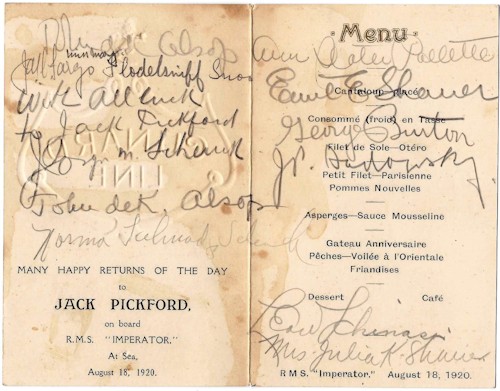 With all luck
to Jack Pickford
Jos. M. Schenck
John deK. Alsop
Norma Talmadge Schenck
CUNARD
LINE
MANY HAPPY RETURNS OF THE DAY
to
JACK PICKFORD,
on board
R.M.S. "IMPERATOR,"
At Sea,
August 18, 1920.
Menu
Emil E. Shauer
Cantaloup—placé
Consommé (froid) en Tasse
George Burton
Filet de Sole—Otéro
Petit Filet—Parisienne
Pommes Nouvelles
Asperges—Sauce Mousseline
Gateau Anniversaire
Pêches—Voilée à l'Orientale
Friandises
Dessert Café
Leon Schinasi
Mrs Julia K. Shauer
RMS "Imperator," August 18, 1920.